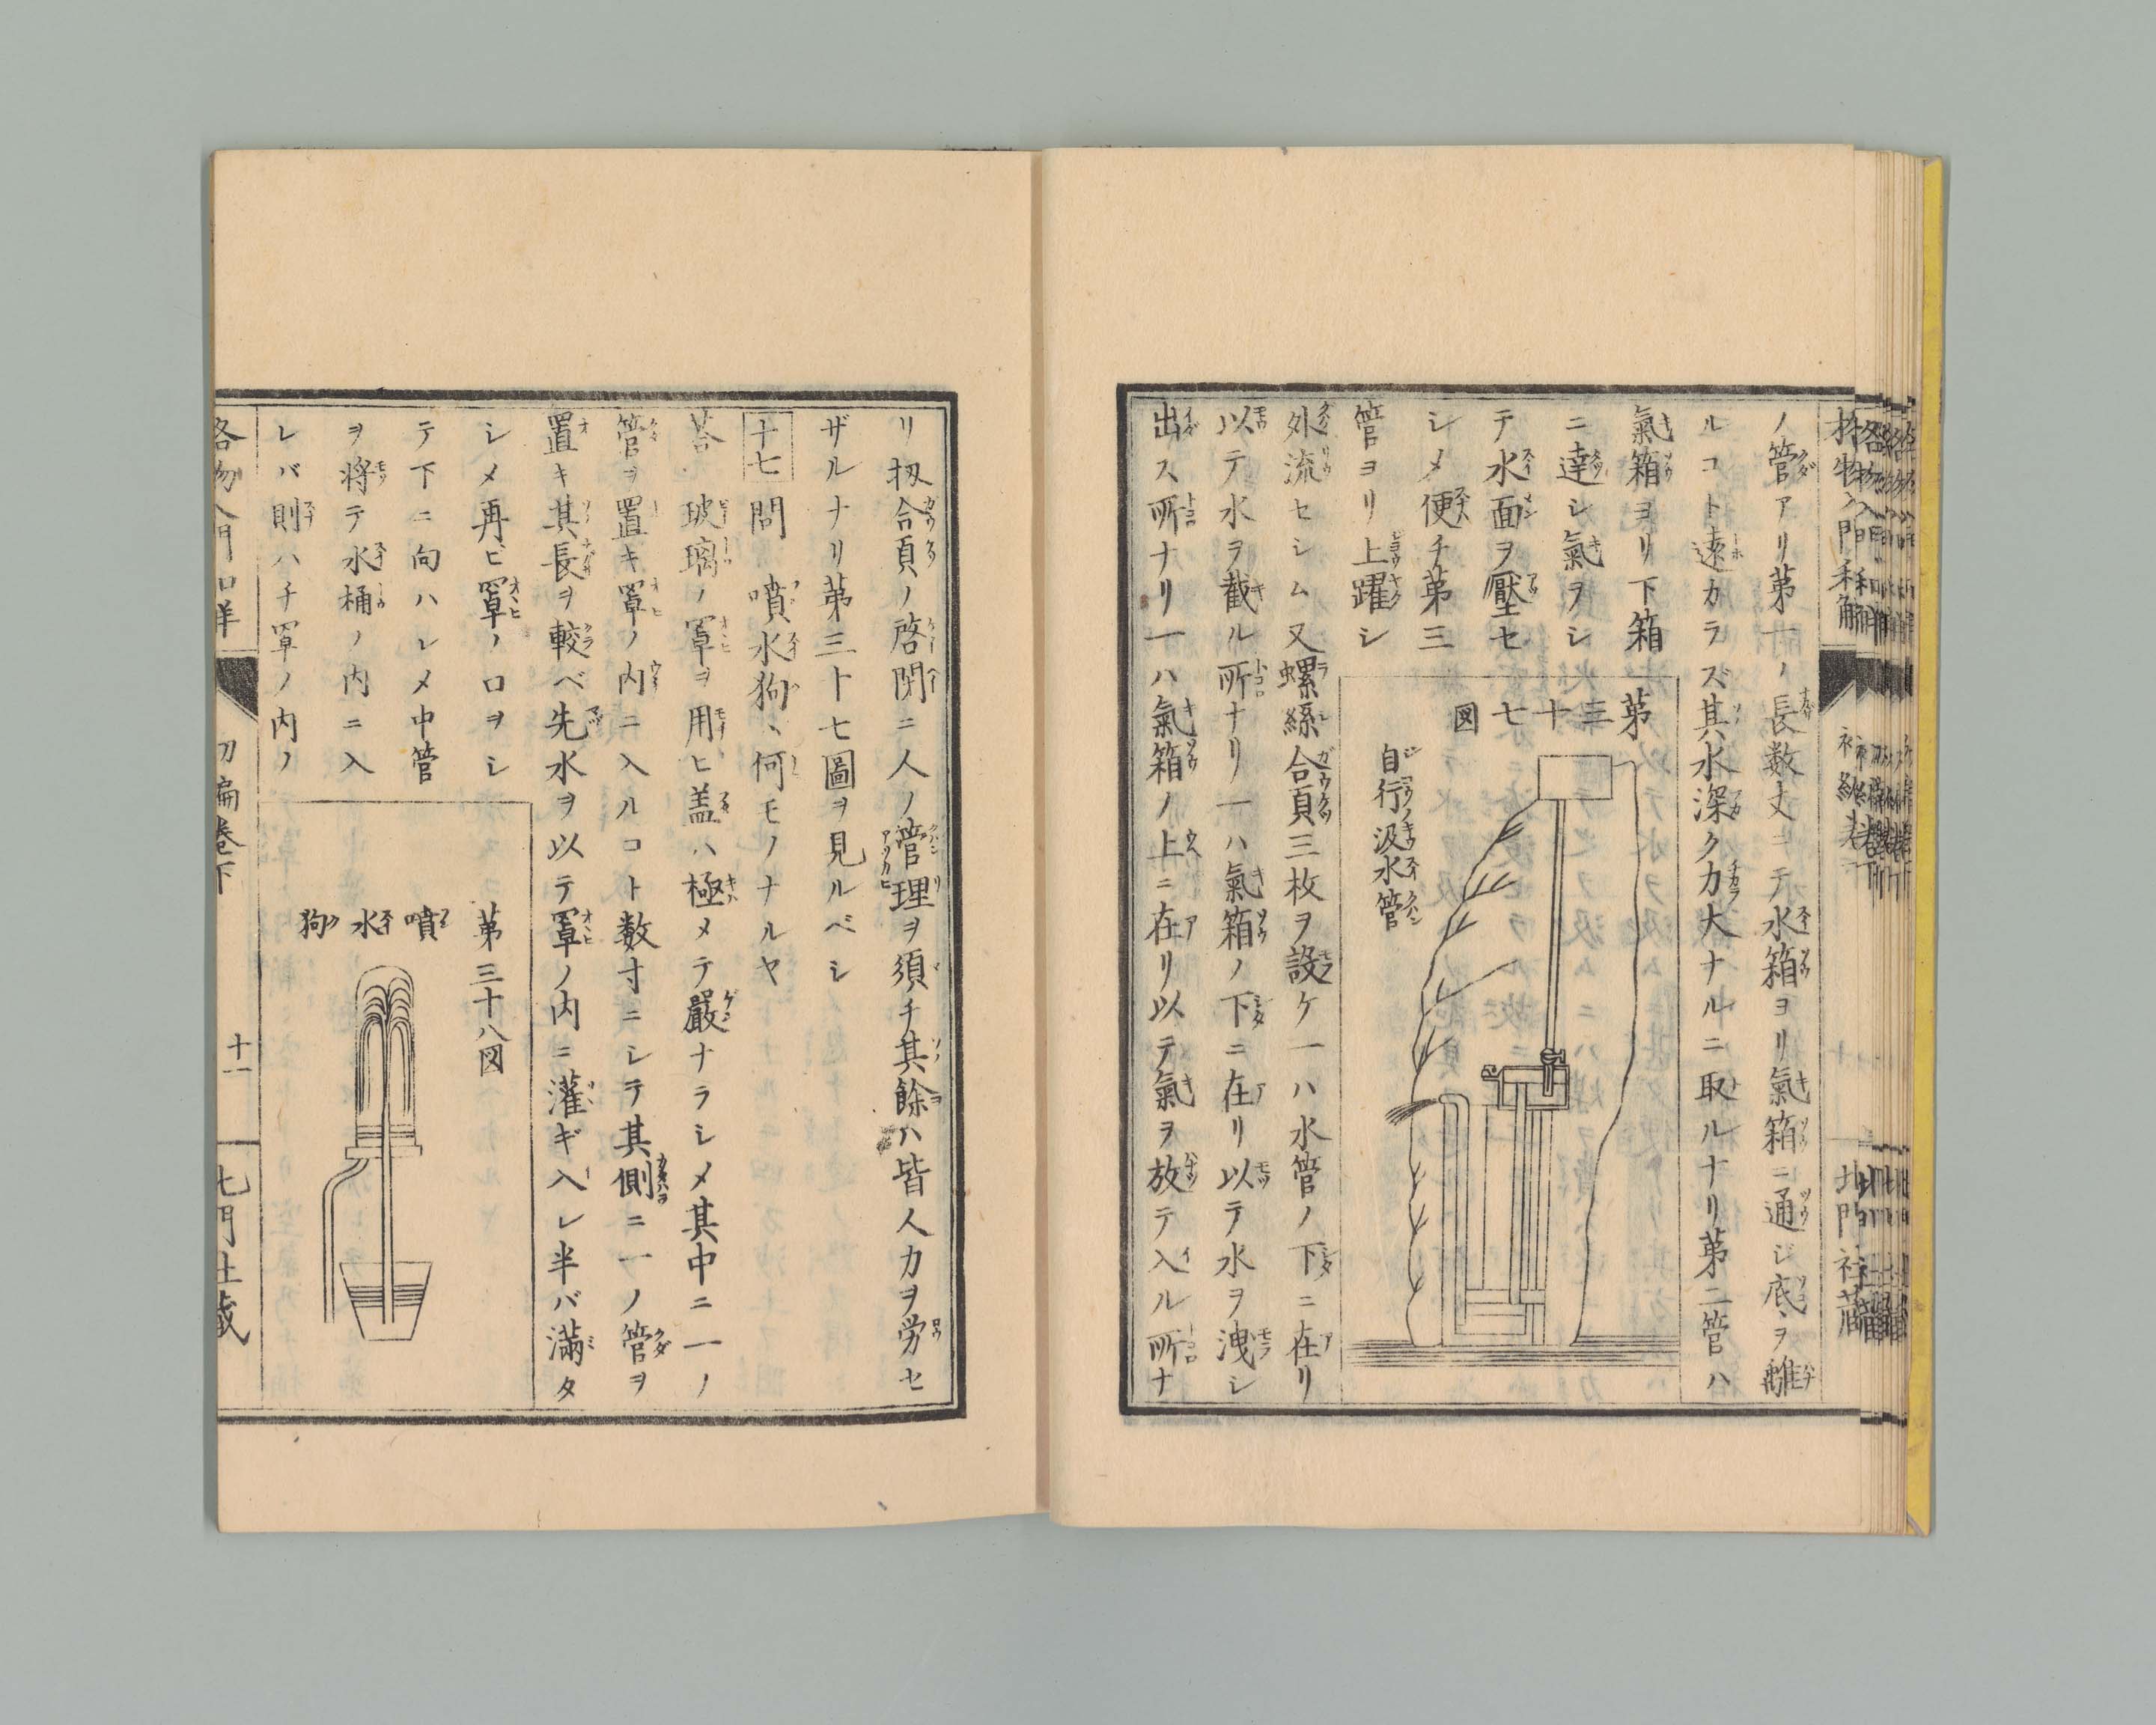 格物入門和解
北門社蔵
ノ管アリ第一ノ長数丈ニテ水箱ヨリ氣箱ニ通ジ底ヲ離
ルコト遠カラズ其水深ク力大ナルニ取ルナリ第二管ハ
氣箱ヨリ下箱
ニ達シ氣ヲシ
テ水面ヲ壓セ
シメ便チ第三
管ヨリ上躍シ
第三十七図
自行汲水管
外流セシム又螺絲合頁三枚ヲ設ケ一ハ水管ノ下ニ在リ
以テ水ヲ截ル所ナリ一ハ氣箱ノ下ニ在リ以テ水ヲ洩シ
出ス所ナリ一ハ氣箱ノ上ニ在リ以テ氣ヲ放テ入ル所ナ
リ扨合頁ノ啓閉ニ人ノ管理ヲ須チ其餘ハ皆人力ヲ労セ
ザルナリ第三十七圖ヲ見ルベシ
十七問 噴水狗ハ何モノナルヤ
荅 玻璃ノ罩ヲ用ヒ盖ハ極メテ嚴ナラシメ其中ニ一ノ
管ヲ置キ罩ノ内ニ入ルコト数寸ニシテ其側ニ一ノ管ヲ
置キ其長ヲ較ベ先水ヲ以テ罩ノ内ニ灌ギ入レ半バ滿タ
シメ再ビ罩ノ口ヲシ
テ下ニ向ハシメ中管
ヲ将テ水桶ノ内ニ入
レバ則ハチ罩ノ内ノ
第三十八図
噴水狗
格物入門和解
初編巻下
十一
北門社蔵